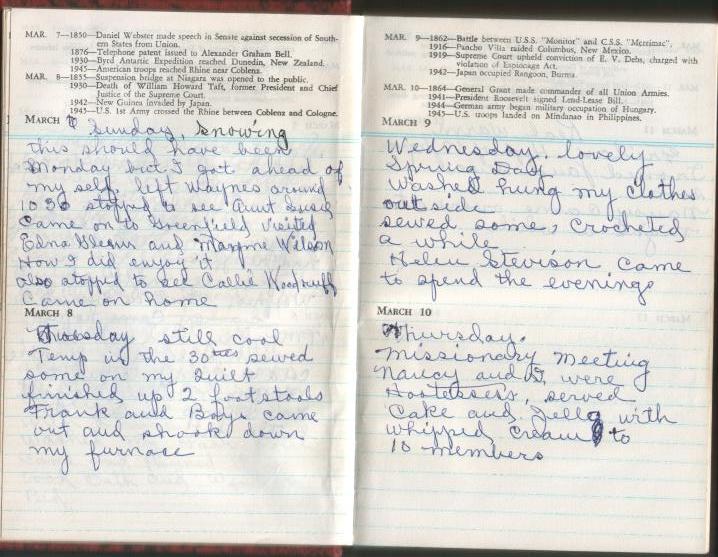 MAR. 7—1850—Daniel Webster made speech in Senate against secession of South-
ern States from Union.
1876—Telephone patent issued to Alexander Graham Bell.
1930—Byrd Antarctic Expedition reached Dunedin, New Zealand.
1945—American troops reached Rhine near Coblenz.
MAR. 8—1855—Suspension bridge at Niagara was opened to the public.
1930—Death of William Howard Taft, former President and Chief
Justice of the Supreme Court.
1942—New Guinea invaded by Japan.
1945—U.S. 1st Army crossed the Rhine between Coblenz and Cologne.
MARCH
Sunday, snowing
this should have been
Monday but I got ahead of
my self. left Waynes around
10 30 stopped to see Aunt
Came on to Greenfield visited
Edna and Maxyne Wilson
How I did enjoy it
also stopped to see Callie Woodruff
Came on home
MARCH 8
still cool
Temp in the 30ties sewed
some on my quilt
finished up 2 footstools
Frank and Boys came
out and shook down
my furnace
MAR. 9—1862—Battle between U.S.S. "Monitor" and C.S.S. "Merrimac".
1916—Pancho Villa raided Columbus, New Mexico.
1919—Supreme Court upheld conviction of E. V. Debs, charged with
violation of Espionage Act.
1942—Japan occupied Rangoon, Burma.
MAR. 10—1864—General Grant made commander of all Union Armies.
1941—President Roosevelt signed Lend-Lease Bill.
1944—German army began military occupation of Hungary.
1945—U.S. troops landed on Mindanao in Philippines.
MARCH 9
Wednesday. lovely
Spring Day
Washed hung my clothes
out side
sewed some, crocheted
a while
Helen Stevison came
to spend the evening
MARCH 10
Thursday.
Missionary Meeting
Nancy and I, were
Hostesses, served
Cake and Jello with
whipped cream to
10 members